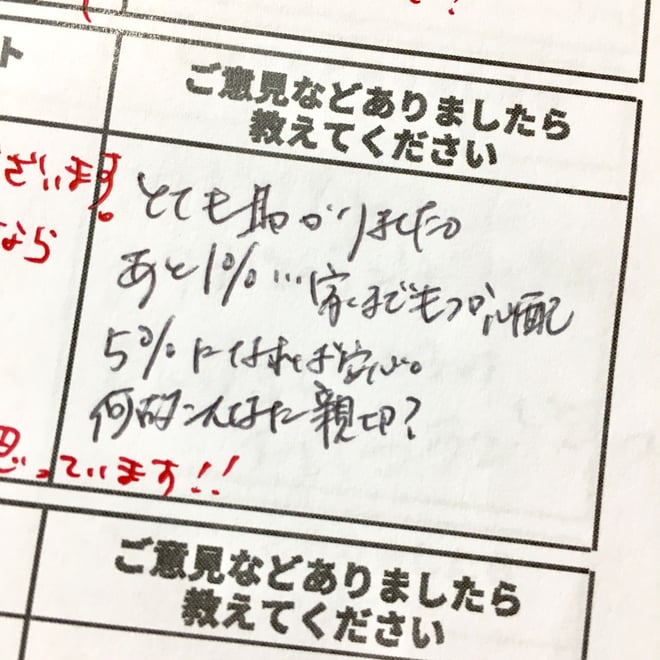 ト
ご意見などありましたら
教えてください
ざいます。
なら
とても助かりました
あと1%…家までもつか心配
5%になれば安心。
何故こんなに親切?
思っています!!
ご意見などありましたら
教えてください